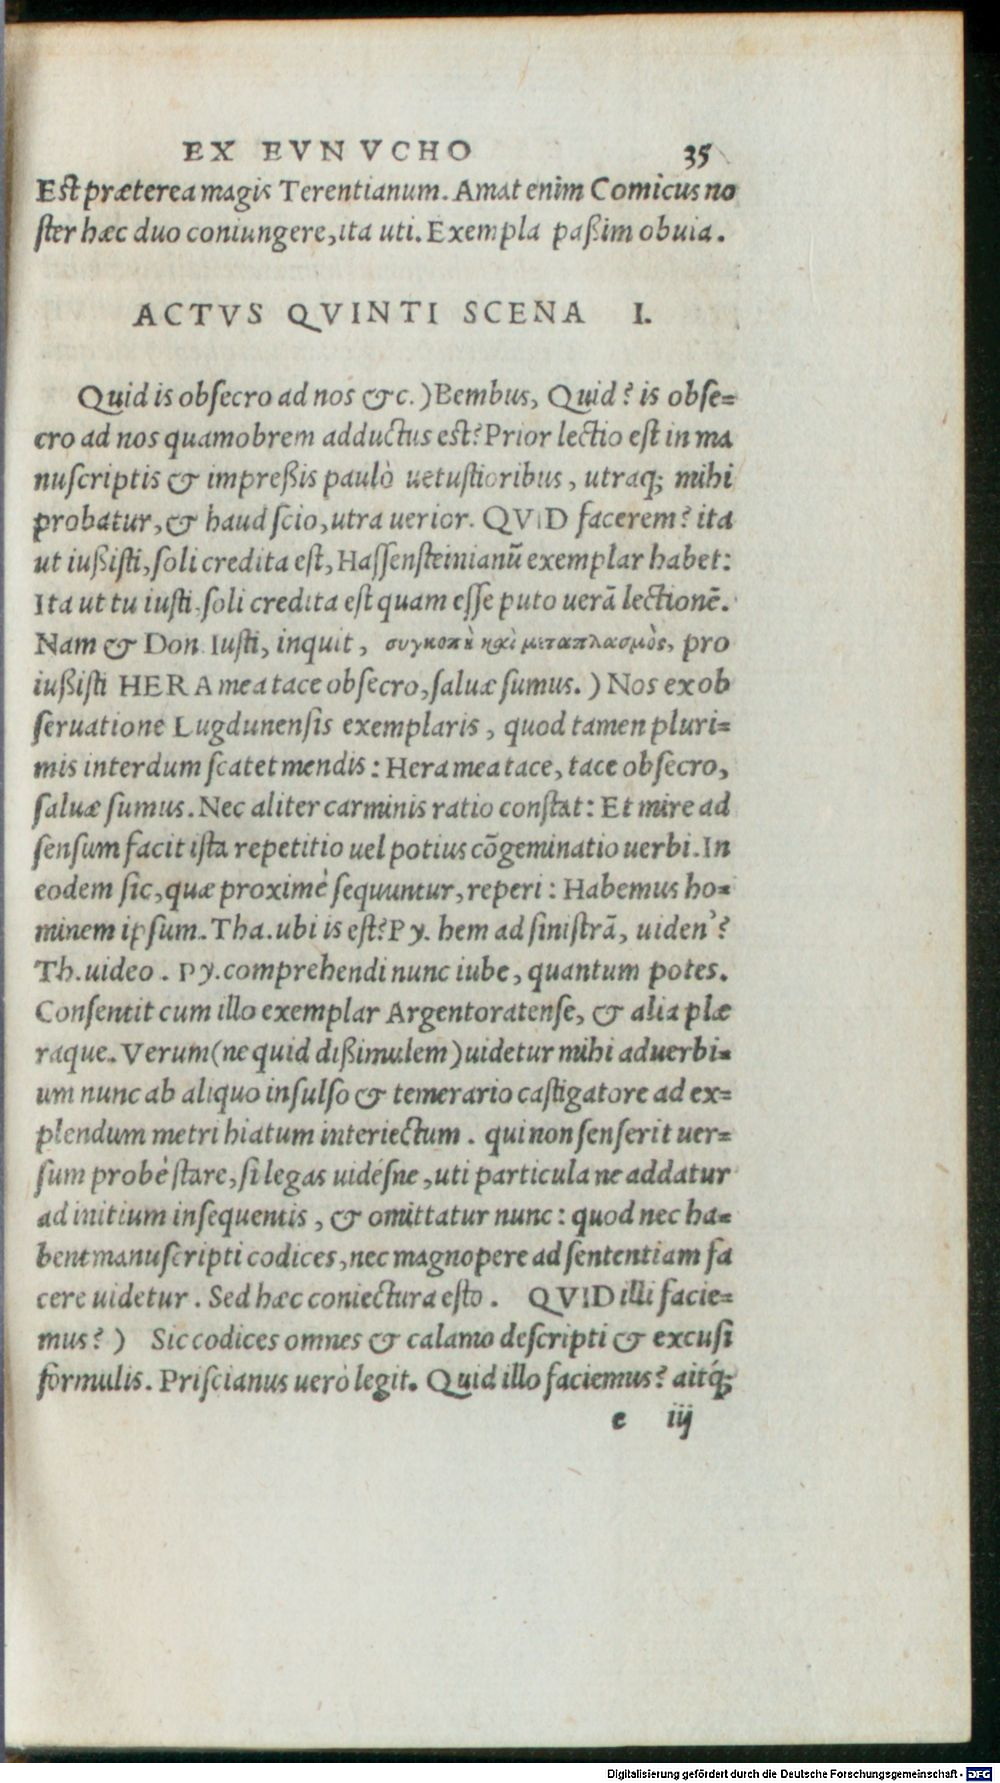 EX EVNVCHO 35
Est præterea magis Terentianum. Amat enim Comicus no
ſter hæc duo coniungere, ita uti. Exempla paßim obuia.
ACTVS QVINTI SCENA I.
Quid is obſecro ad nos &c.) Bembus, Quid? is obſe=
cro ad nos quamobrem adductus est? Prior lectio eſt in ma
nuſcriptis & impreßis paulò uetuſtioribus, utraq; mihi
probatur, & haud ſcio, utra uerior. QVID facerem? ita
ut iußiſti, ſoli credita eſt, Haſſenſteinianū exemplar habet:
Ita ut tu iuſti, ſoli credita eſt quam eſſe puto uerā lectionē.
Nam & Don. Iuſti, inquit, συγκοπὴ καὶ μεταπλασμὸς, pro
iußiſti HERA mea tace obſecro, ſaluæ ſumus.) Nos ex ob
ſeruatione Lugdunenſis exemplaris, quod tamen pluri=
mis interdum ſcatet mendis: Hera mea tace, tace obſecro,
ſaluæ ſumus. Nec aliter carminis ratio conſtat: Et mire ad
ſenſum facit iſta repetitio uel potius cōgeminatio uerbi. In
eodem ſic, quæ proximè ſequuntur, reperi: Habemus ho=
minem ipſum. Tha. ubi is eſt? Py. hem ad ſiniſtrā, uiden'?
Th. uideo. Py. comprehendi nunc iube, quantum potes.
Conſentit cum illo exemplar Argentoratenſe, & alia plæ
raque. Verum (ne quid dißimulem) uidetur mihi aduerbi=
um nunc ab aliquo inſulſo & temerario caſtigatore ad ex=
plendum metri hiatum interiectum. qui non ſenſerit uer=
ſum probè ſtare, ſi legas uidéſne, uti particula ne addatur
ad initium inſequentis, & omittatur nunc: quod nec ha=
bent manuſcripti codices, nec magnopere ad ſententiam fa
cere uidetur. Sed hæc coniectura eſto. QVID illi facie=
mus?) Sic codices omnes & calamo deſcripti & excuſi
formulis. Priſcianus uerò legit. Quid illo faciemus? aitq́;
e iij
Digitalisierung gefördert durch die Deutsche Forschungsgemeinschaft - DFG